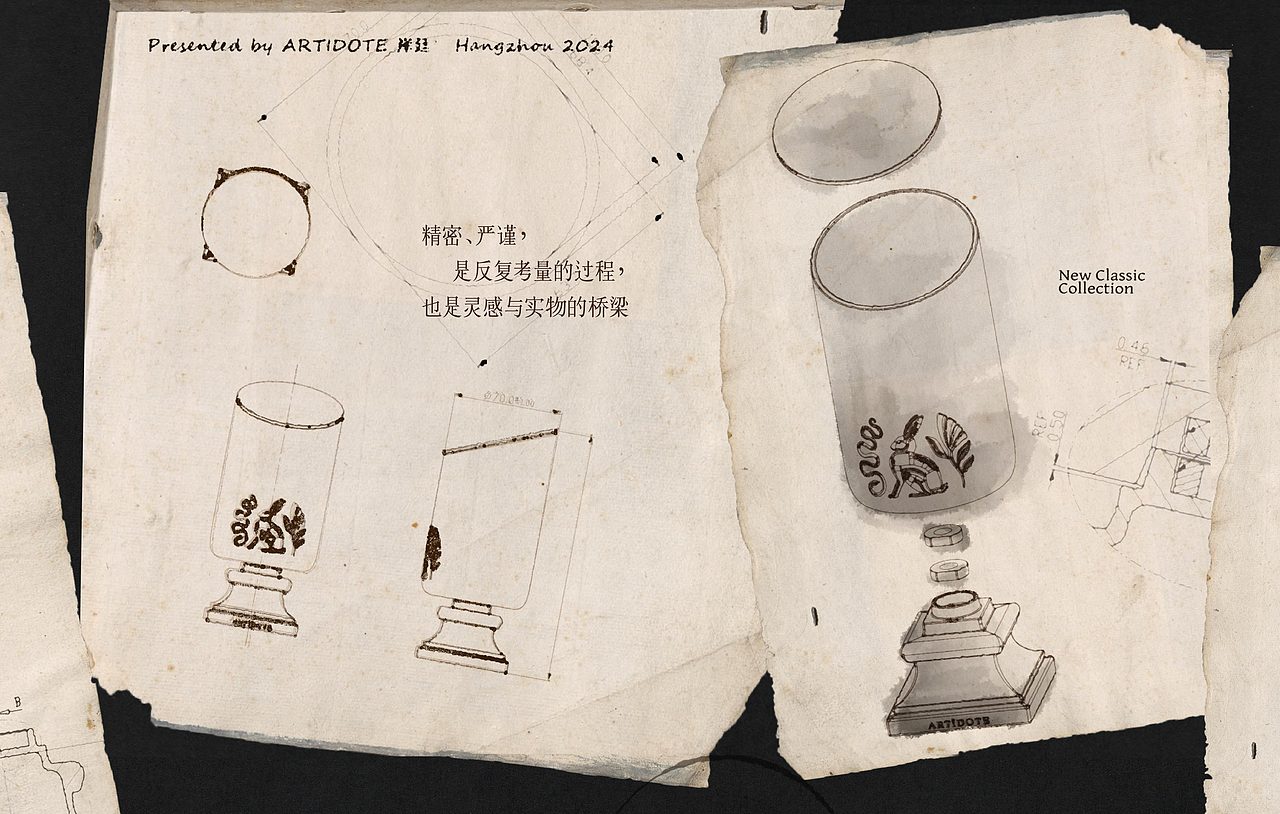 Presented by ARTIDOTE Hangzhou 2024
精密、严谨，
是反复考量的过程，
也是灵感与实物的桥梁
New Classic
Collection
0.46
REF
REF
0.50
ARTIDOTE
B